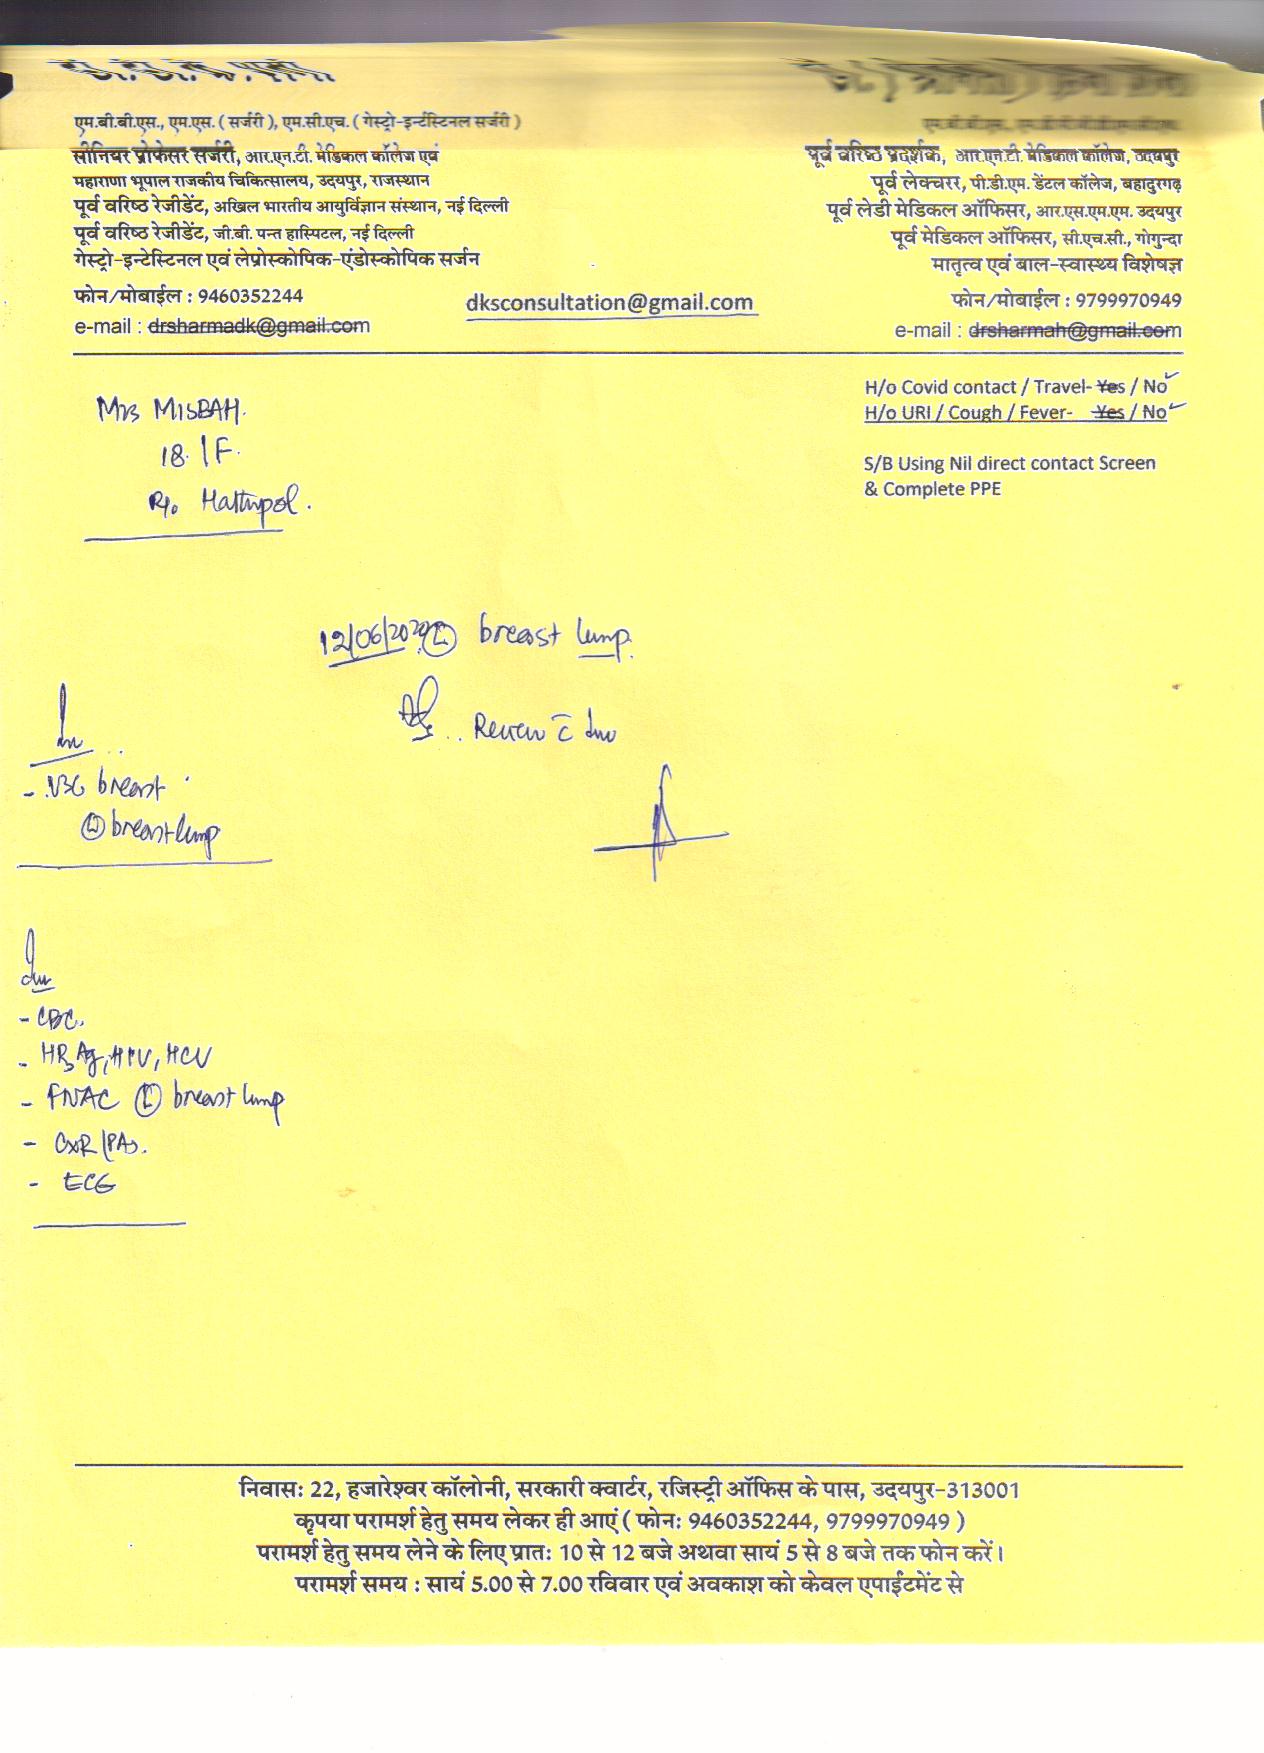 एम.बी.बी.एस., एम.एस. ( सर्जरी ), एम.सी.एच. ( गेस्ट्रो-इन्टेंस्टिनल सर्जरी )
सीनियर प्रोफेसर सर्जरी, आर.एन.टी. मेडिकल कॉलेज एवं
महाराणा भूपाल राजकीय चिकित्सालय, उदयपुर, राजस्थान
पूर्व वरिष्ठ रेजीडेंट, अखिल भारतीय आयुर्विज्ञान संस्थान, नई दिल्ली
पूर्व वरिष्ठ रेजीडेंट, जी.बी. पन्त हास्पिटल, नई दिल्ली
गेस्ट्रो-इन्टेस्टिनल एवं लेप्रोस्कोपिक-एंडोस्कोपिक सर्जन
फोन/मोबाईल : 9460352244
e-mail : drsharmadk@gmail.com
पूर्व वरिष्ठ प्रदर्शक, आर.एन.टी. मेडिकल कॉलेज, उदयपुर
पूर्व लेक्चरर, पी.डी.एम. डेंटल कॉलेज, बहादुरगढ़
पूर्व लेडी मेडिकल ऑफिसर, आर.एस.एम.एम. उदयपुर
पूर्व मेडिकल ऑफिसर, सी.एच.सी., गोगुन्दा
मातृत्व एवं बाल-स्वास्थ्य विशेषज्ञ
फोन/मोबाईल : 9799970949
e-mail : drsharmah@gmail.com
dksconsultation@gmail.com
H/o Covid contact / Travel- Yes / No
H/o URI / Cough / Fever- Yes / No
S/B Using Nil direct contact Screen
& Complete PPE
Mrs MISBAH.
18 / F.
R/o Hathipol.
12/06/2020 (L) breast lump.
Review c̄ Inv
Inv
- USG breast
(L) breast lump
Inv
- CBC.
- HBsAg, HIV, HCV
- FNAC (L) breast lump
- CXR (PA).
- ECG
निवास: 22, हजारेश्वर कॉलोनी, सरकारी क्वार्टर, रजिस्ट्री ऑफिस के पास, उदयपुर-313001
कृपया परामर्श हेतु समय लेकर ही आएं ( फोन: 9460352244, 9799970949 )
परामर्श हेतु समय लेने के लिए प्रात: 10 से 12 बजे अथवा सायं 5 से 8 बजे तक फोन करें।
परामर्श समय : सायं 5.00 से 7.00 रविवार एवं अवकाश को केवल एपाईंटमेंट से